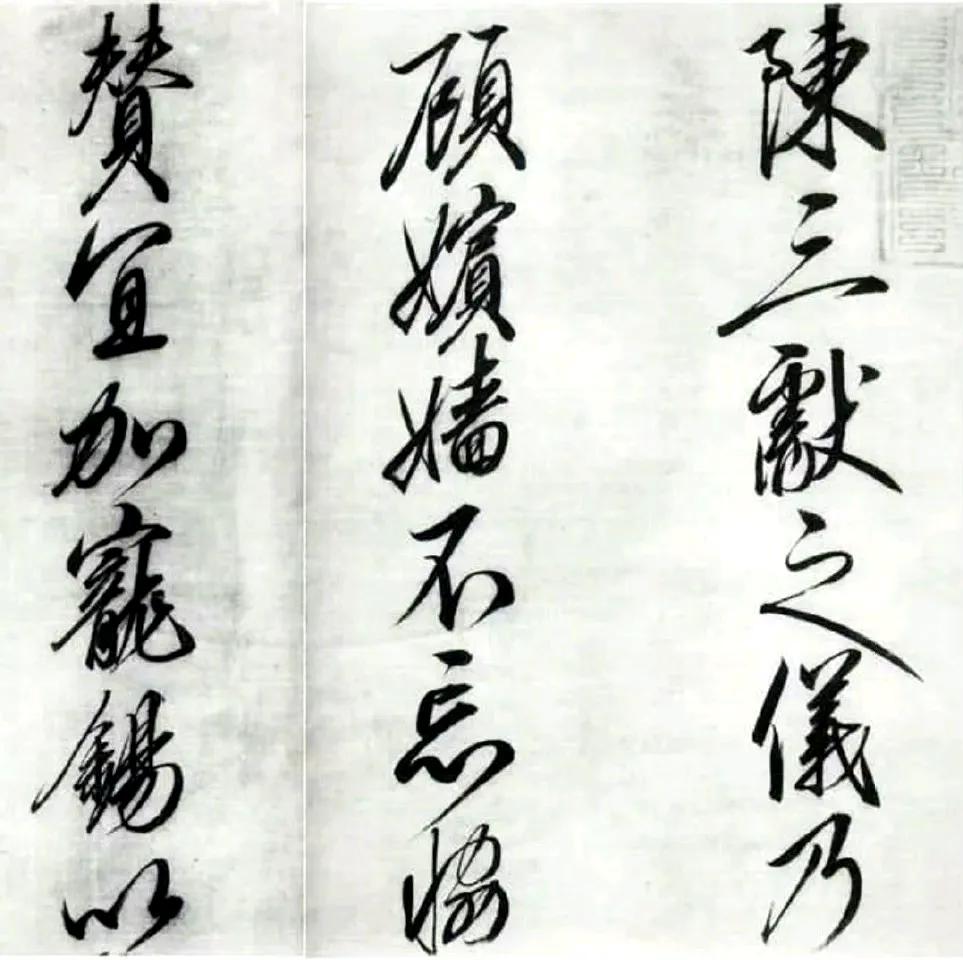 陳三獻之儀乃
顧嬪嬙不忘協
贊宜加寵錫以